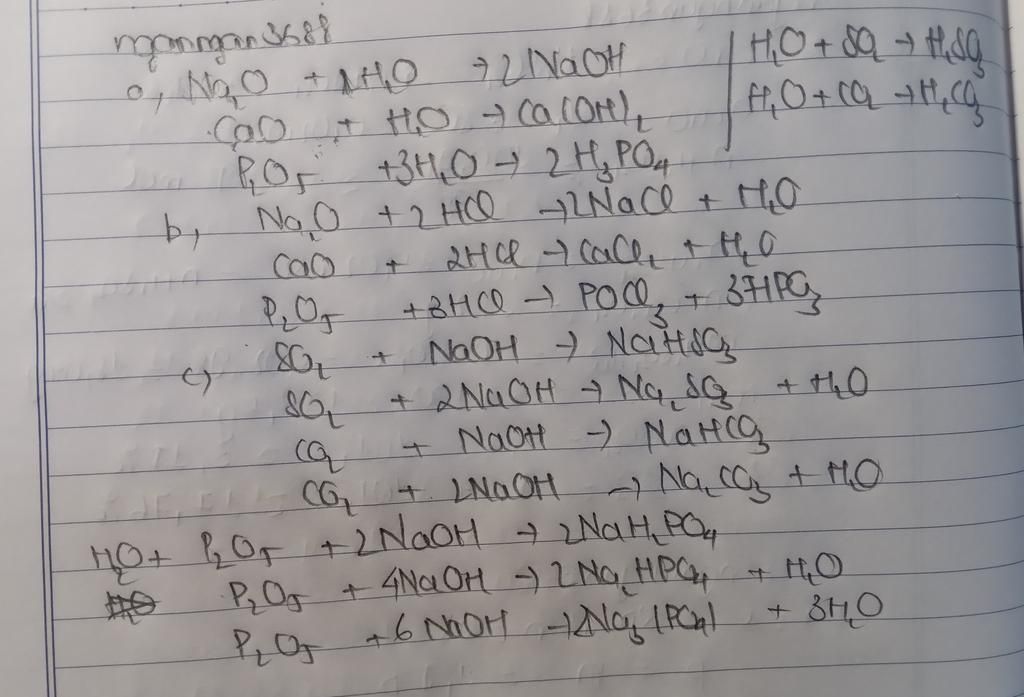 nganngan3688
a, Na₂O + 1H₂O → 2NaOH | H₂O + SO₂ → H₂SO₃
CaO + H₂O → Ca(OH)₂ | H₂O + CO₂ → H₂CO₃
P₂O₅ + 3H₂O → 2H₃PO₄
b, Na₂O + 2HCl → 2NaCl + H₂O
CaO + 2HCl → CaCl₂ + H₂O
P₂O₅ + 3HCl → POCl₃ + 3HPO₃
c) SO₂ + NaOH → NaHSO₃
SO₂ + 2NaOH → Na₂SO₃ + H₂O
CO₂ + NaOH → NaHCO₃
CO₂ + 2NaOH → Na₂CO₃ + H₂O
H₂O + P₂O₅ + 2NaOH → 2NaH₂PO₄
P₂O₅ + 4NaOH → 2Na₂HPO₄ + H₂O
P₂O₅ + 6NaOH → 2Na₃(PO₄) + 3H₂O